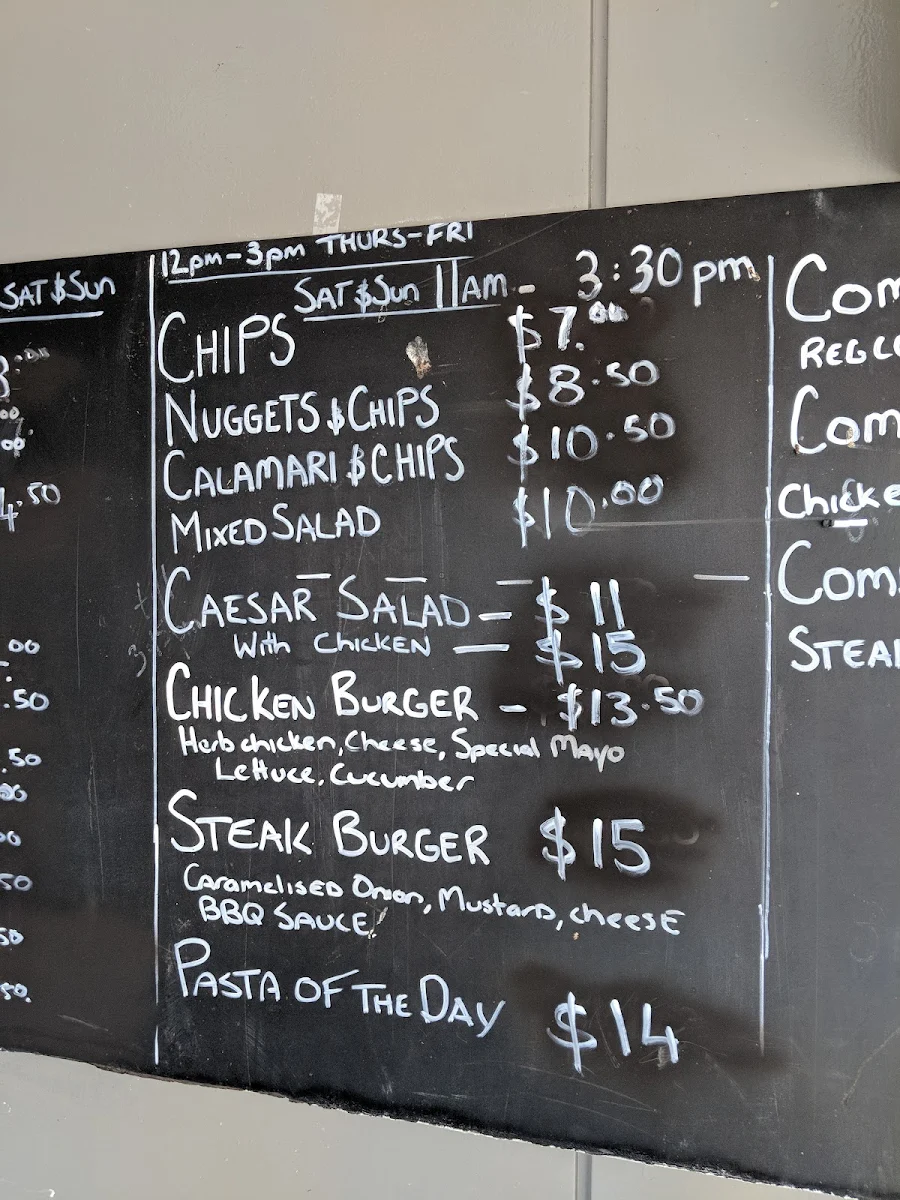 SAT $ Sun
.00
.00
.50
.00
.50
.50
.50
12pm - 3pm THURS-FRI
SAT $ Sun 11AM - 3:30 pm
CHIPS $7.00
NUGGETS $ CHIPS $8.50
CALAMARI $ CHIPS $10.50
MIXED SALAD $10.00
CAESAR SALAD - $11
With CHICKEN - $15
CHICKEN BURGER - $13.50
Herb chicken, Cheese, Special Mayo
Lettuce, Cucumber
STEAK BURGER $15
Caramelised Onion, Mustard, cheese
BBQ SAUCE
PASTA OF THE DAY $14